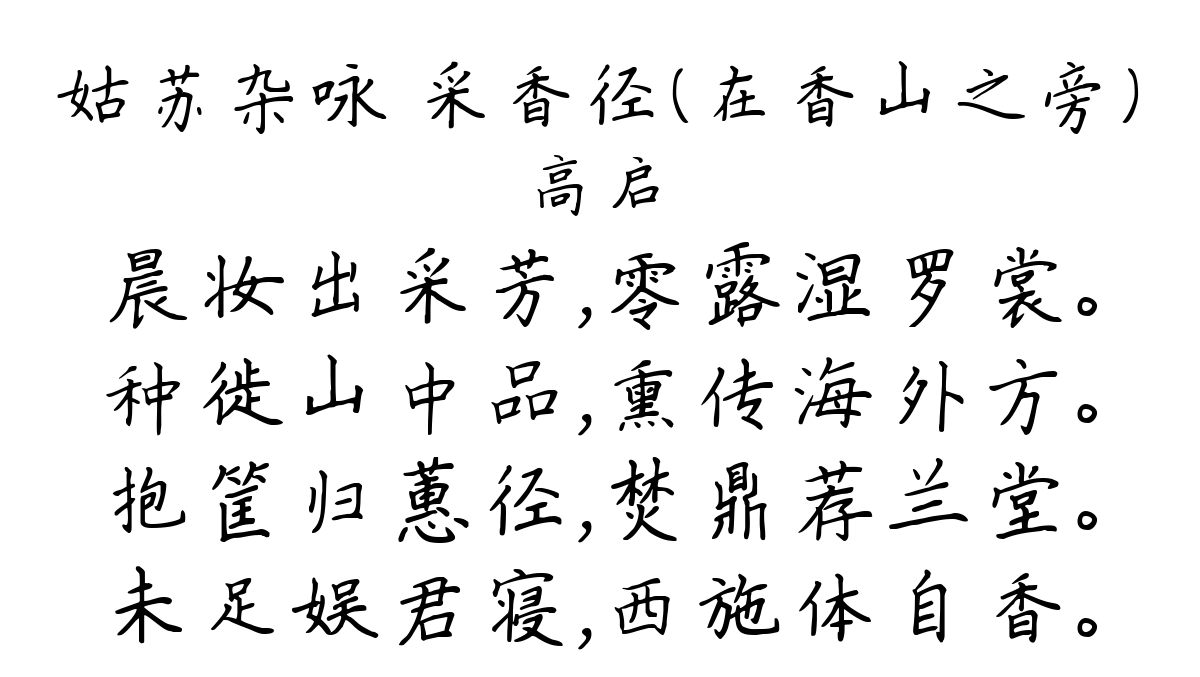 姑苏杂咏 采香径(在香山之旁)
高启
晨妆出采芳,零露湿罗裳。
种徙山中品,熏传海外方。
抱筐归蕙径,焚鼎荐兰堂。
未足娱君寝,西施体自香。